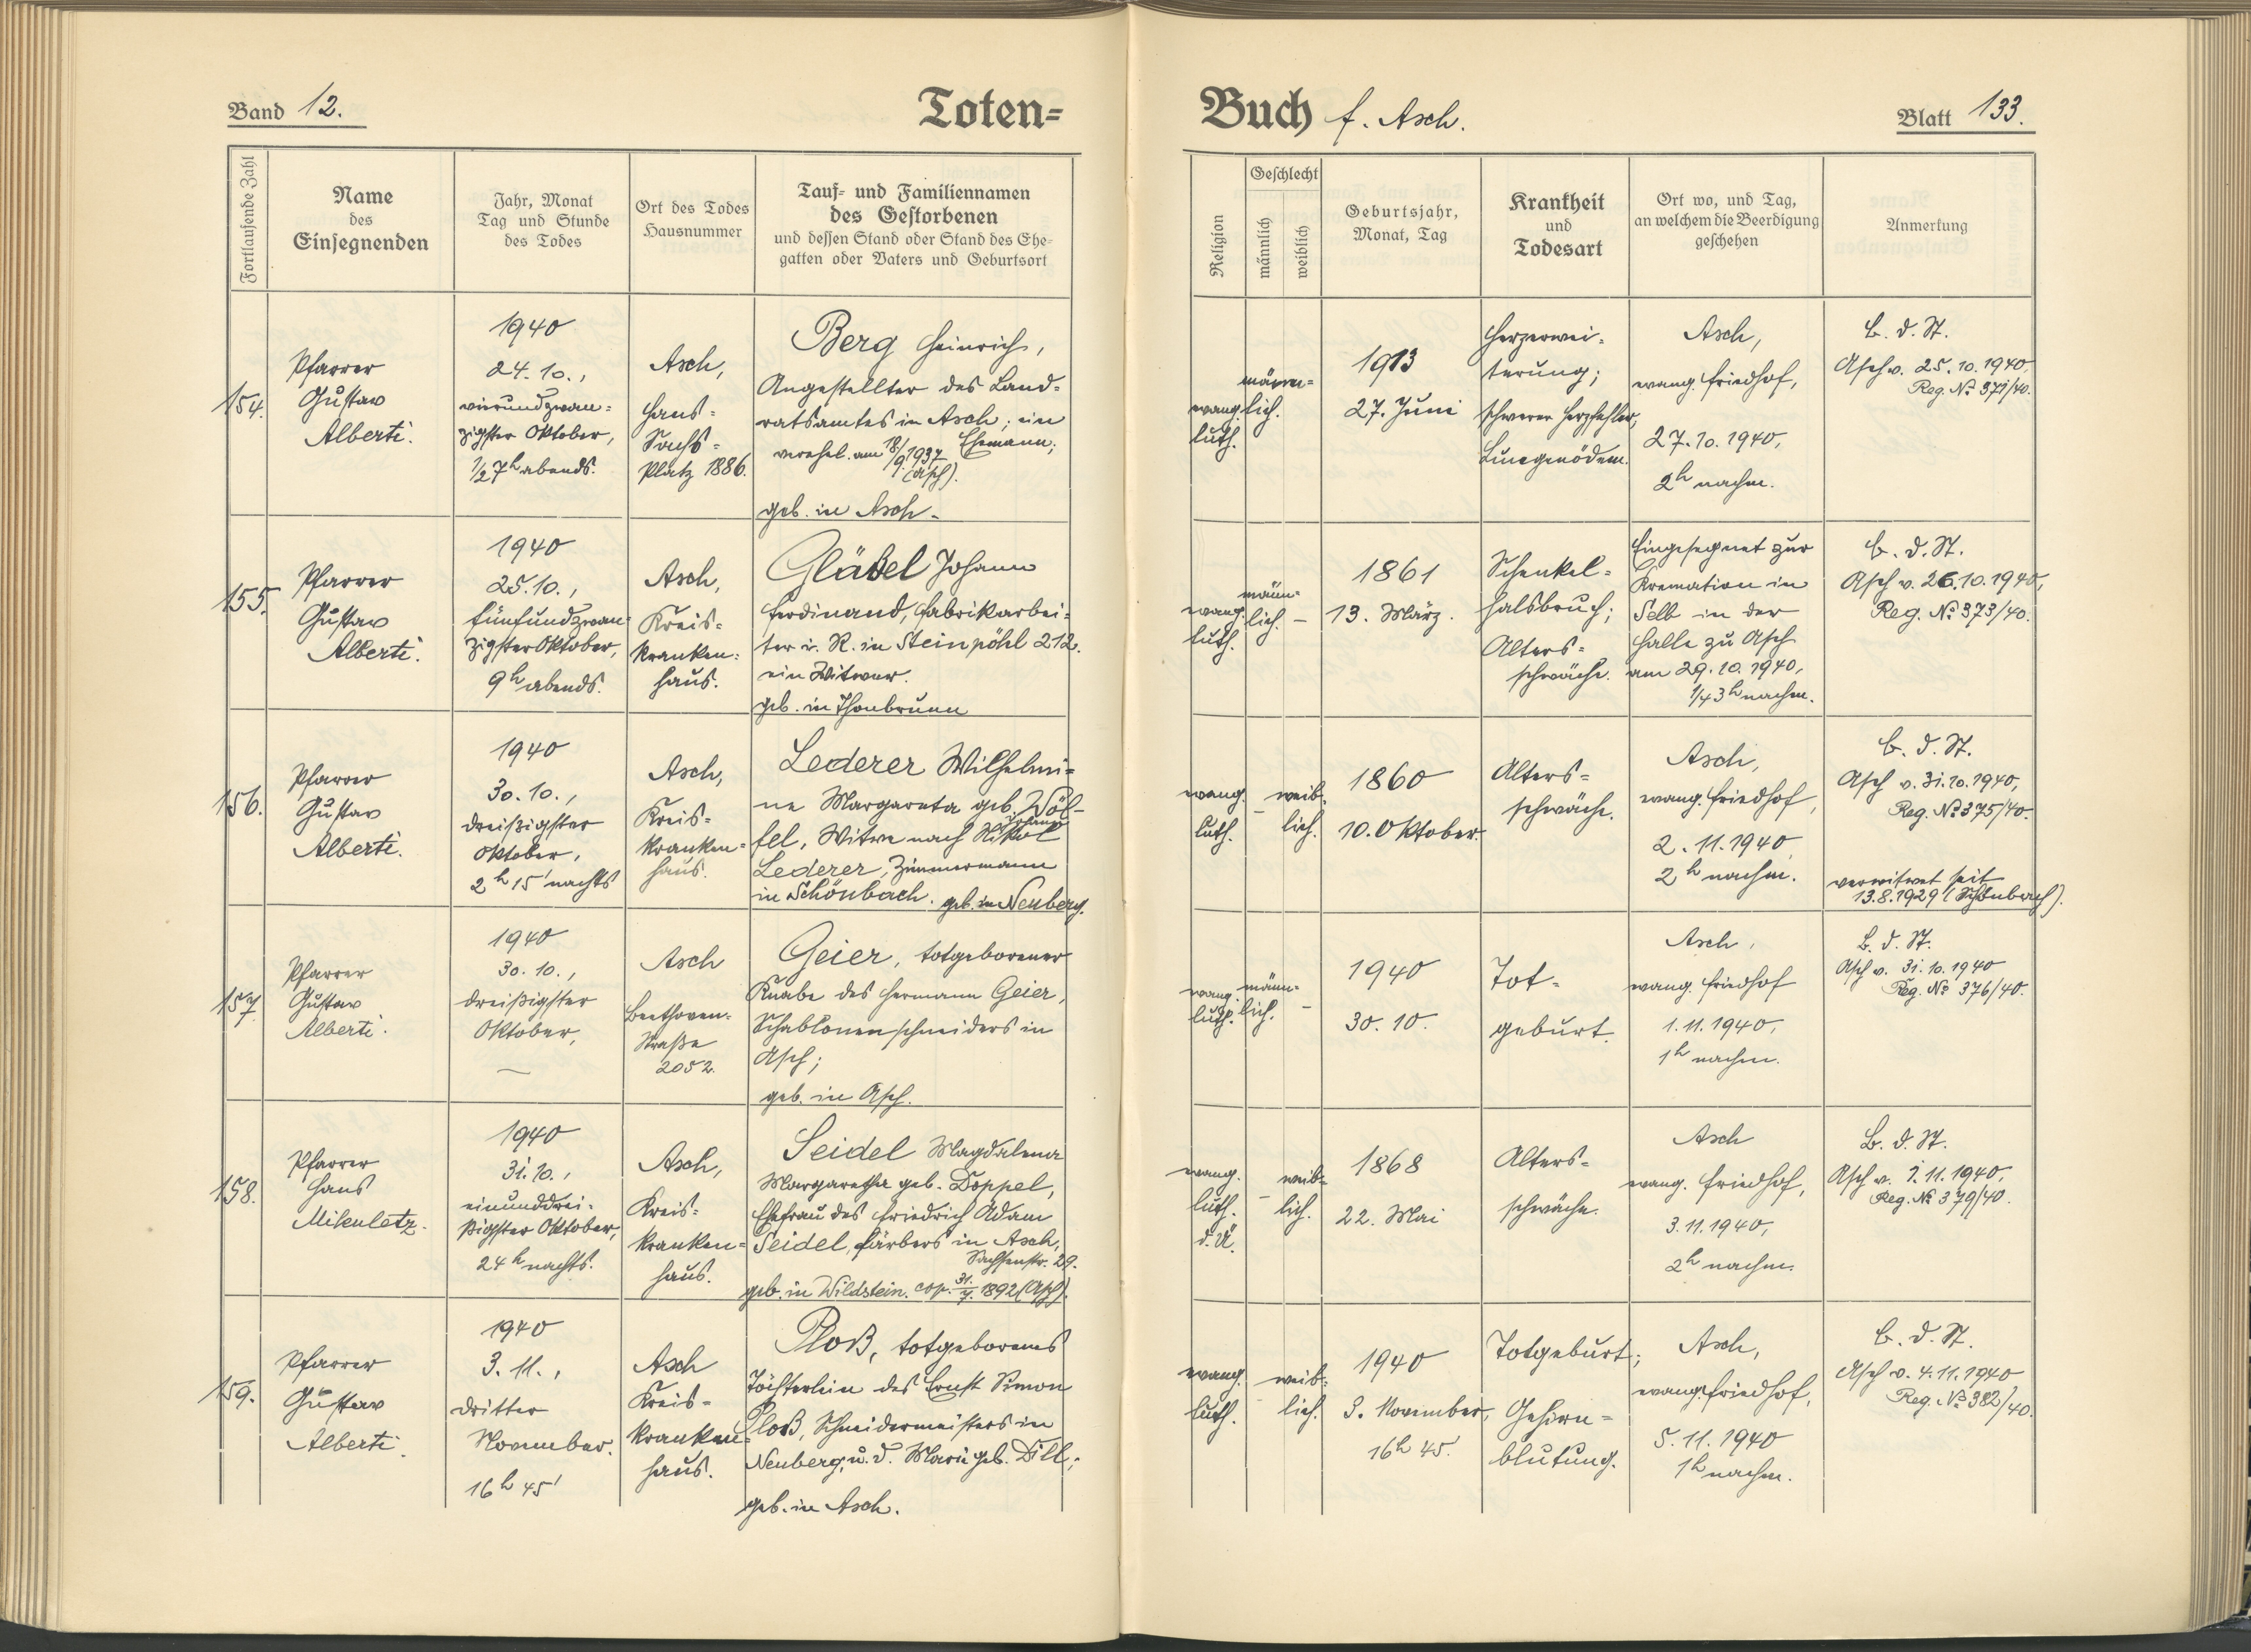 Band 12.
Toten=
Fortlaufende Zahl
Name
des
Einsegnenden
Jahr, Monat
Tag und Stunde
des Todes
Ort des Todes
Hausnummer
Tauf= und Familiennamen
des Gestorbenen
und dessen Stand oder Stand des Ehe=
gatten oder Vaters und Geburtsort
154.
Pfarrer
Gustav
Alberti.
1940
24. 10.,
vierundzwan=
zigster Oktober,
1/2 7h abends.
Asch,
Hans=
Sachs=
Platz 1886.
Berg Heinrich,
Angestellter des Land=
ratsamtes in Asch; ein
Ehemann;
verehel. am 18/9. 1937
(Asch).
geb. in Asch.
155.
Pfarrer
Gustav
Alberti.
1940
25. 10.,
fünfundzwan=
zigster Oktober,
9h abends.
Asch,
Kreis=
kranken=
haus.
Gläßel Johann
Ferdinand, Fabrikarbei=
ter i. R. in Steinpöhl 212.
ein Witwer.
geb. in Thonbrunn
156.
Pfarrer
Gustav
Alberti.
1940
30. 10.,
dreißigster
Oktober,
2h 15' nachts
Asch,
Kreis=
kranken=
haus.
Lederer Wilhelmi=
ne Margareta geb. Wölf=
fel, Witwe nach Nikol
Johann
Lederer, Zimmermann
in Schönbach. geb. in Neuberg.
157.
Pfarrer
Gustav
Alberti.
1940
30. 10.,
dreißigster
Oktober,
Asch
Beethoven=
Straße
2052.
Geier, totgeborener
Knabe des Hermann Geier,
Schablonenschneiders in
Asch;
geb. in Asch.
158.
Pfarrer
Hans
Mikuletz.
1940
31. 10.,
einunddrei=
ßigster Oktober,
24h nachts.
Asch,
Kreis=
kranken=
haus.
Seidel Magdalena
Margaretha geb. Doppel,
Ehefrau des Friedrich Adam
Seidel, Färbers in Asch,
Sachsenstr. 29.
geb. in Wildstein. cop. 31./7. 1892 (Asch).
159.
Pfarrer
Gustav
Alberti.
1940
3. 11.,
dritter
November.
16h 45'
Asch
Kreis=
kranken=
haus.
Ploß, totgeborenes
Töchterlein des Ernst Simon
Ploß, Schneidermeisters in
Neuberg, u. d. Marie geb. Dill;
geb. in Asch.
Buch f. Asch.
Blatt 133.
Religion
Geschlecht
männlich
weiblich
Geburtsjahr,
Monat, Tag
Krankheit
und
Todesart
Ort wo, und Tag,
an welchem die Beerdigung
geschehen
Anmerkung
evang.
luth.
männ=
lich.
1913
27. Juni
Herzerwei=
terung;
schwerer Herzfehler,
Lungenödem.
Asch,
evang. Friedhof,
27. 10. 1940,
2h nachm.
B. d. St.
Asch v. 25. 10. 1940.
Reg. No 371/40.
evang.
luth.
männ=
lich. –
1861
13. März.
Schenkel=
halsbruch;
Alters=
schwäche.
Eingesegnet zur
Kremation in
Selb in der
Halle zu Asch
am 29. 10. 1940,
1/4 3h nachm.
B. d. St.
Asch v. 26. 10. 1940,
Reg. No 373/40.
evang.
luth.
– weib=
lich.
1860
10. Oktober.
Alters=
schwäche.
Asch,
evang. Friedhof,
2. 11. 1940
2h nachm.
B. d. St.
Asch v. 31. 10. 1940,
Reg. No 375/40.
verwitwet seit
13. 8. 1929 (Schönbach).
evang.
luth.
männ=
lich. –
1940
30. 10.
Tot=
geburt.
Asch,
evang. Friedhof
1. 11. 1940,
1h nachm.
B. d. St.
Asch v. 31. 10. 1940
Reg. No 376/40.
evang.
luth.
d. Ü.
– weib=
lich.
1868
22. Mai
Alters=
schwäche.
Asch
evang. Friedhof,
3. 11. 1940,
2h nachm.
B. d. St.
Asch v. 1. 11. 1940,
Reg. No 379/40.
evang.
luth.
– weib=
lich.
1940
3. November,
16h 45'.
Totgeburt;
Gehirn=
blutung.
Asch,
evang. Friedhof,
5. 11. 1940
1h nachm.
B. d. St.
Asch v. 4. 11. 1940
Reg. No 382/40.